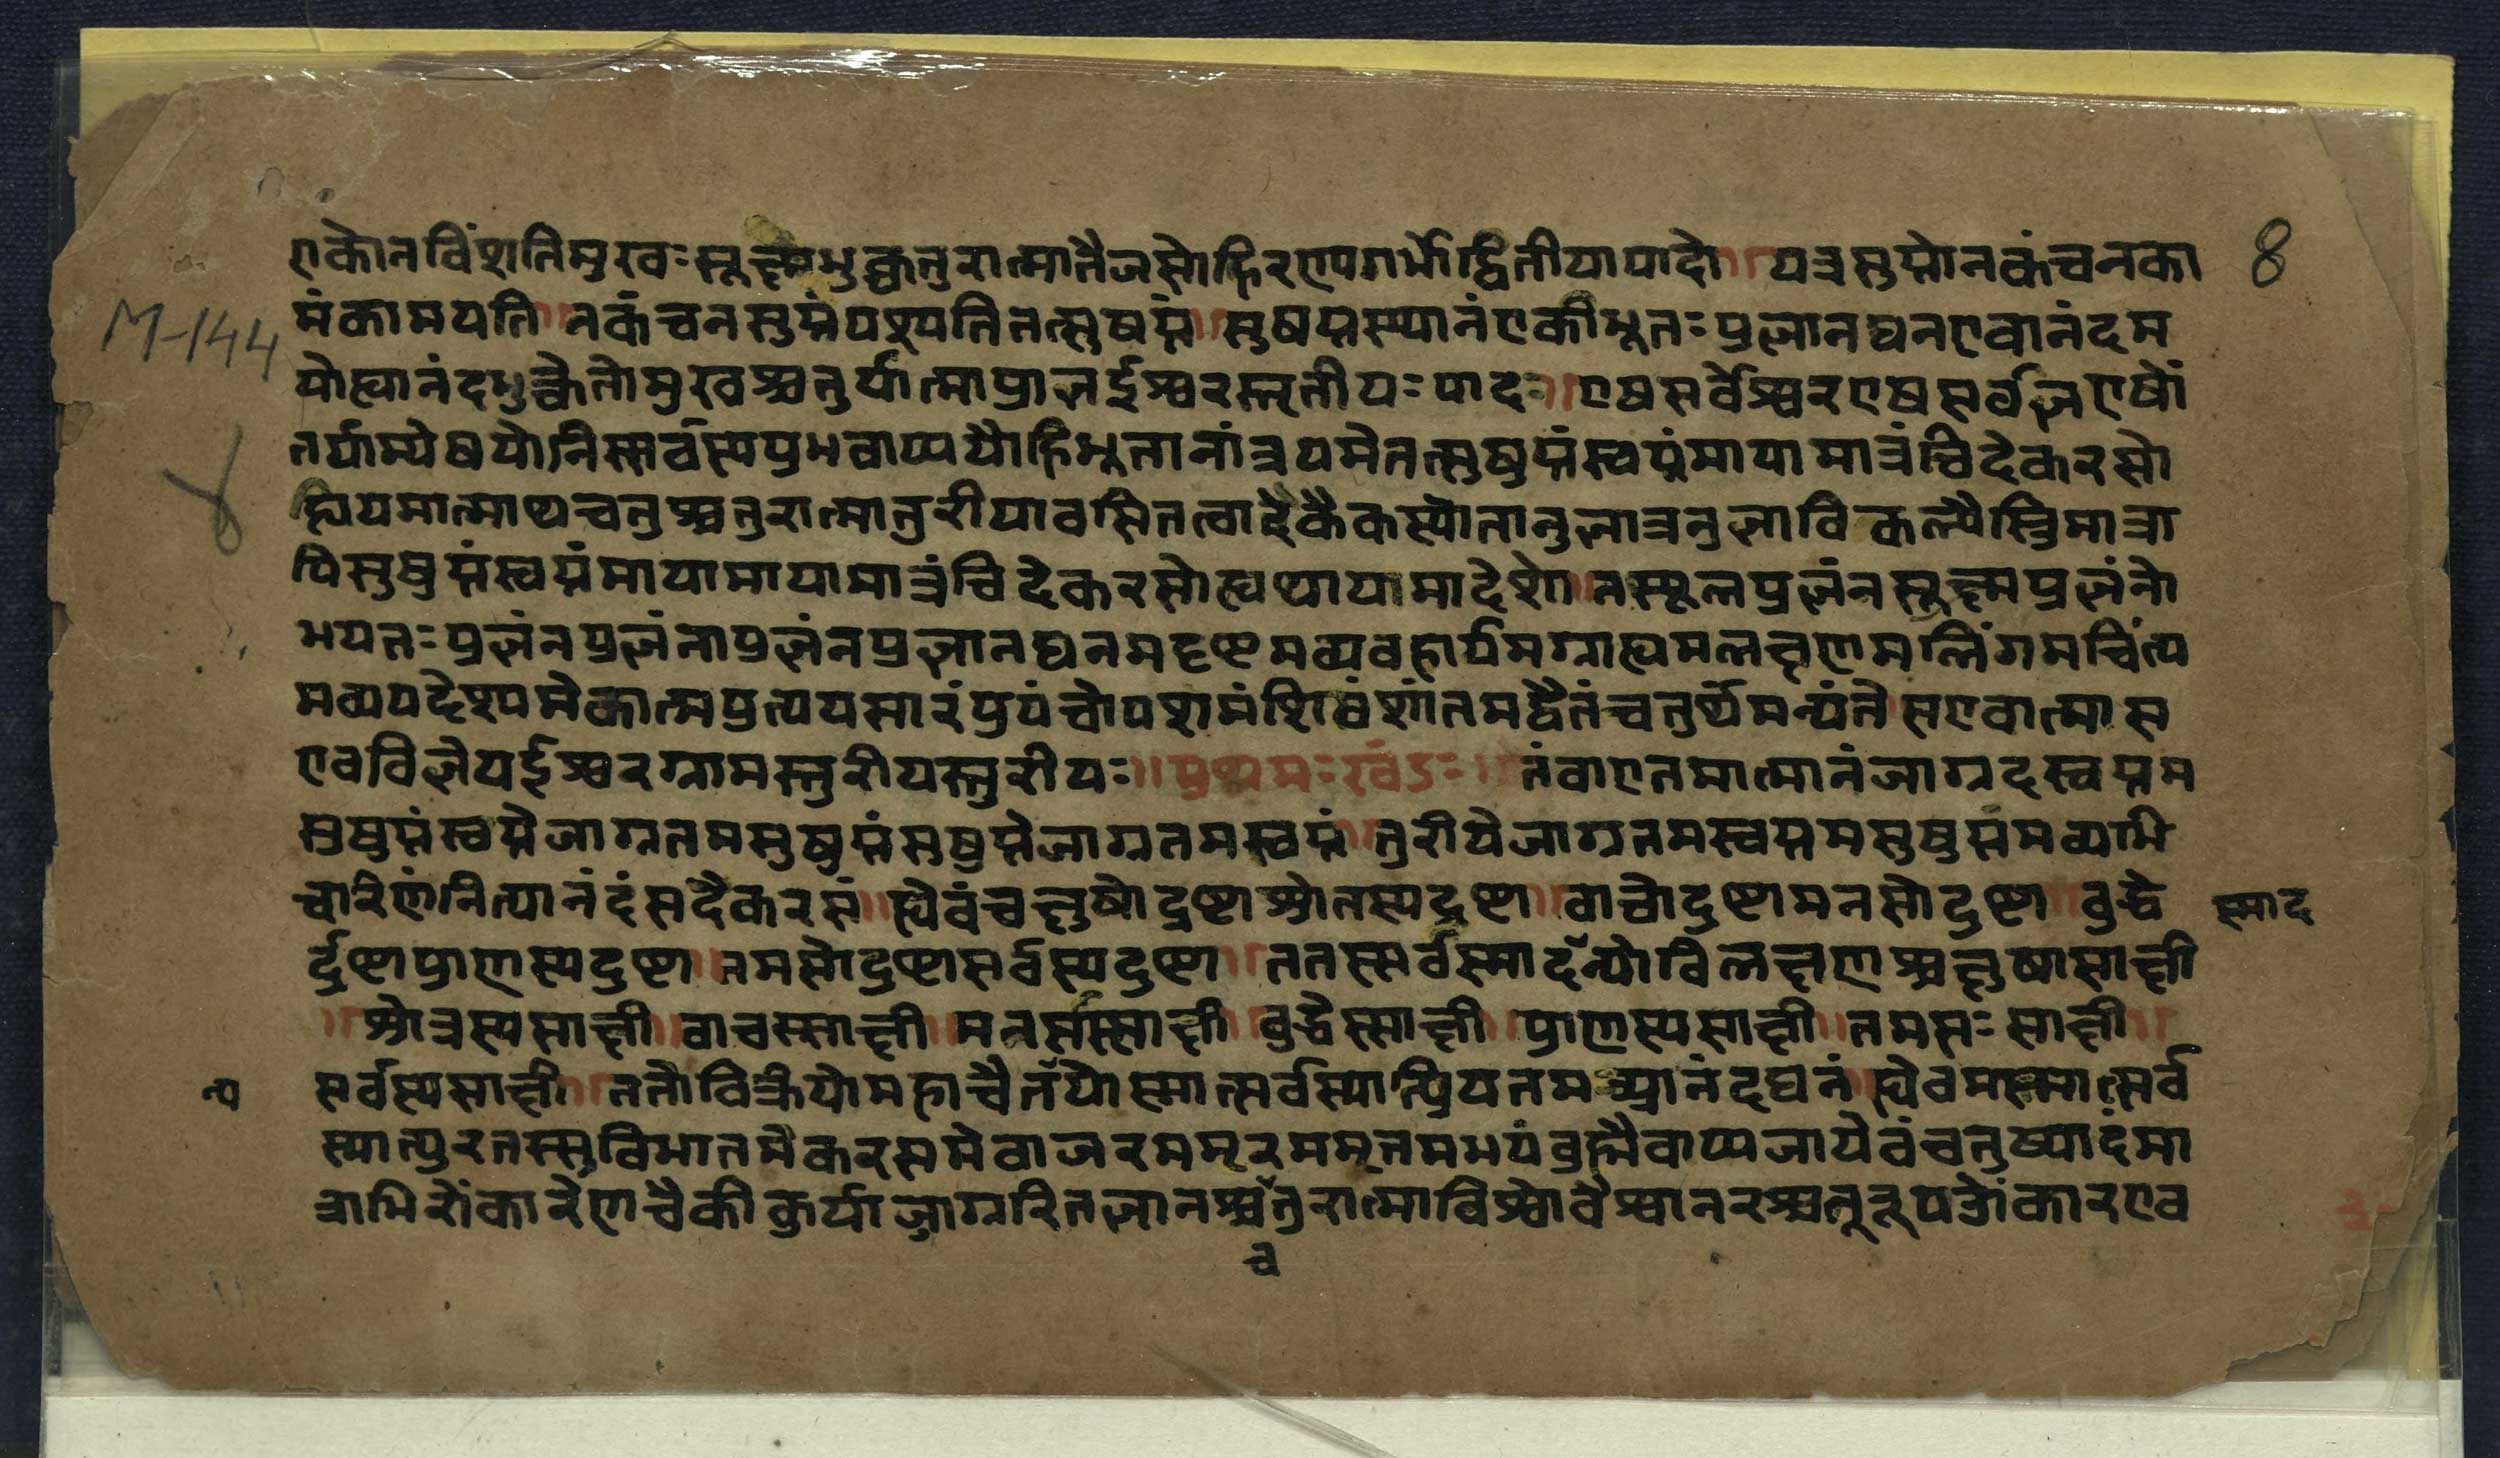 एकोनविंशतिमुखः सूक्ष्मभुक्चतुरात्मातैजसोहिरण्यगर्भोद्वितीयापादो ॥ यत्रसुप्तोनकंचनका
8
मंकामयति ॥ नकंचनसुप्नंपश्यतितत्सुषप्नं ॥ सुषप्नस्थानंएकीभूतः प्रज्ञानघनएवानंदम
M-144
योह्यानंदभुक्चैतोमुखश्चतुर्यात्माप्राज्ञईश्वरस्तृतीयः पादः ॥ एषसर्वेश्वरएषसर्वज्ञएषों
तर्याम्येषयोनिस्सर्वस्यप्रभवाप्ययौहिभूतानांत्रयमेतत्सुषुप्नंस्वप्नंमायामात्रंचिदेकरसो
४
ह्ययमात्माथचतुश्चतुरात्मातुरीयावसितत्वादेकैकस्योतानुज्ञात्रनुज्ञाविकल्पैस्त्रिमात्रा
पिसुषुप्नंस्वप्नंमायामायामात्रंचिदेकरसोह्यथायामादेशो ॥ नस्थूलप्रज्ञंनसूक्ष्मप्रज्ञंनो
भयतः प्रज्ञंनप्रज्ञंनाप्रज्ञंनप्रज्ञानघनमदृष्टमव्यवहार्यमग्राह्यमलक्षणमलिंगमचिंत्य
मव्यपदेश्यमेकात्मप्रत्ययसारंप्रपंचोपशमंशिवंशांतमद्वैतंचतुर्थमन्यंते सएवात्मास
एवविज्ञेयईश्वरग्रामस्तुरीयस्तुरीयः ॥ प्रथमः खंडः ॥ तंवाएतमात्मानंजाग्रदस्वप्नम
सुषुप्नंस्वप्नेजाग्रतमसुषुप्नंसषुप्नेजाग्रतमस्वप्नं ॥ तुरीयेजाग्रतमस्वप्नमसुषुप्तंमव्यभि
चारिणंनित्यानंदंसदैकरसं ॥ ह्येवंचक्षुषोद्रष्टाश्रोतस्यद्रष्टा ॥ वाचोद्रष्टामनसोद्रष्टा ॥ बुद्धे
स्माद
र्द्रष्टाप्राणस्यद्रष्टा ॥ तमसोद्रष्टासर्वस्यद्रष्टा ॥ ततस्सर्वस्मादन्योविलक्षणश्चक्षुषासाक्षी
॥ श्रोत्रस्यसाक्षी ॥ वाचस्साक्षी ॥ मनसस्साक्षी ॥ बुद्धेस्साक्षी ॥ प्राणस्यसाक्षी ॥ तमसः साक्षी ॥
न्य
सर्वस्यसाक्षी ॥ ततोविक्रियोमहाचैतयोस्मात्सर्वस्यात्प्रियतमआनंदघनं ॥ ह्येवमस्मात्सर्व
स्मात्पुरतस्सुविभातमेकरसमेवाजरममरममृतमभयंब्रह्मैवाप्यजायेवंचतुष्पादंमा
त्राभिरोंकारेणचैकीकुर्याज्जाग्ररितज्ञानश्चतुरात्माविश्वोवैश्वानरश्चतूरूपओंकारएव
च